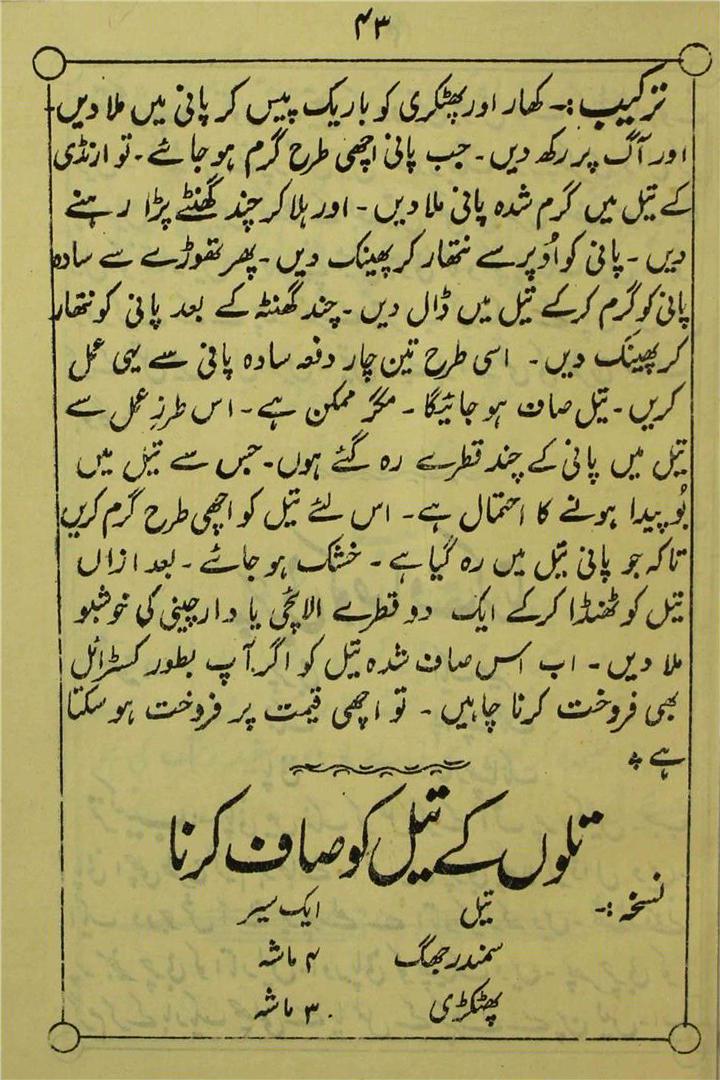 ۴۳
ترکیب :۔ کھار اور پھٹکری کو باریک پیس کر پانی میں ملا دیں۔
اور آگ پر رکھ دیں۔ جب پانی اچھی طرح گرم ہو جائے۔ تو ارنڈی
کے تیل میں گرم شدہ پانی ملا دیں۔ اور ہلا کر چند گھنٹے پڑا رہنے
دیں۔ پانی کو اُوپر سے نتھار کر پھینک دیں۔ پھر تھوڑے سے سادہ
پانی کو گرم کرکے تیل میں ڈال دیں۔ چند گھنٹہ کے بعد پانی کو نتھار
کر پھینک دیں۔ اسی طرح تین چار دفعہ سادہ پانی سے یہی عمل
کریں۔ تیل صاف ہو جائیگا۔ مگر ممکن ہے۔ اس طرزِ عمل سے
تیل میں پانی کے چند قطرے رہ گئے ہوں۔ جس سے تیل میں
بُو پیدا ہونے کا احتمال ہے۔ اس لئے تیل کو اچھی طرح گرم کریں
تاکہ جو پانی تیل میں رہ گیا ہے۔ خشک ہو جائے۔ بعد ازاں
تیل کو ٹھنڈا کرکے ایک دو قطرے الائچی یا دارچینی کی خوشبو
ملا دیں۔ اب اس صاف شدہ تیل کو اگر آپ بطور کسٹرائل
بھی فروخت کرنا چاہیں۔ تو اچھی قیمت پر فروخت ہو سکتا
ہے ؞
تلوں کے تیل کو صاف کرنا
نسخہ :۔ تیل ایک سیر
سمندر جھگ ۴ ماشہ
پھٹکڑی ۳ ماشہ